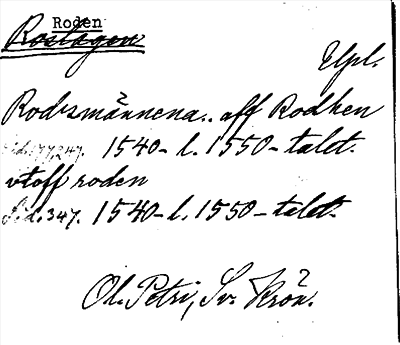 Roden
Roslagen
Upl.
Rodzmännena.. aff Rodhen
Sid. 177, 247. 1540- l. 1550-talet.
vtoff roden
Sid. 347. 1540-l. 1550-talet.
Ol. Petri, Sv. Krön.